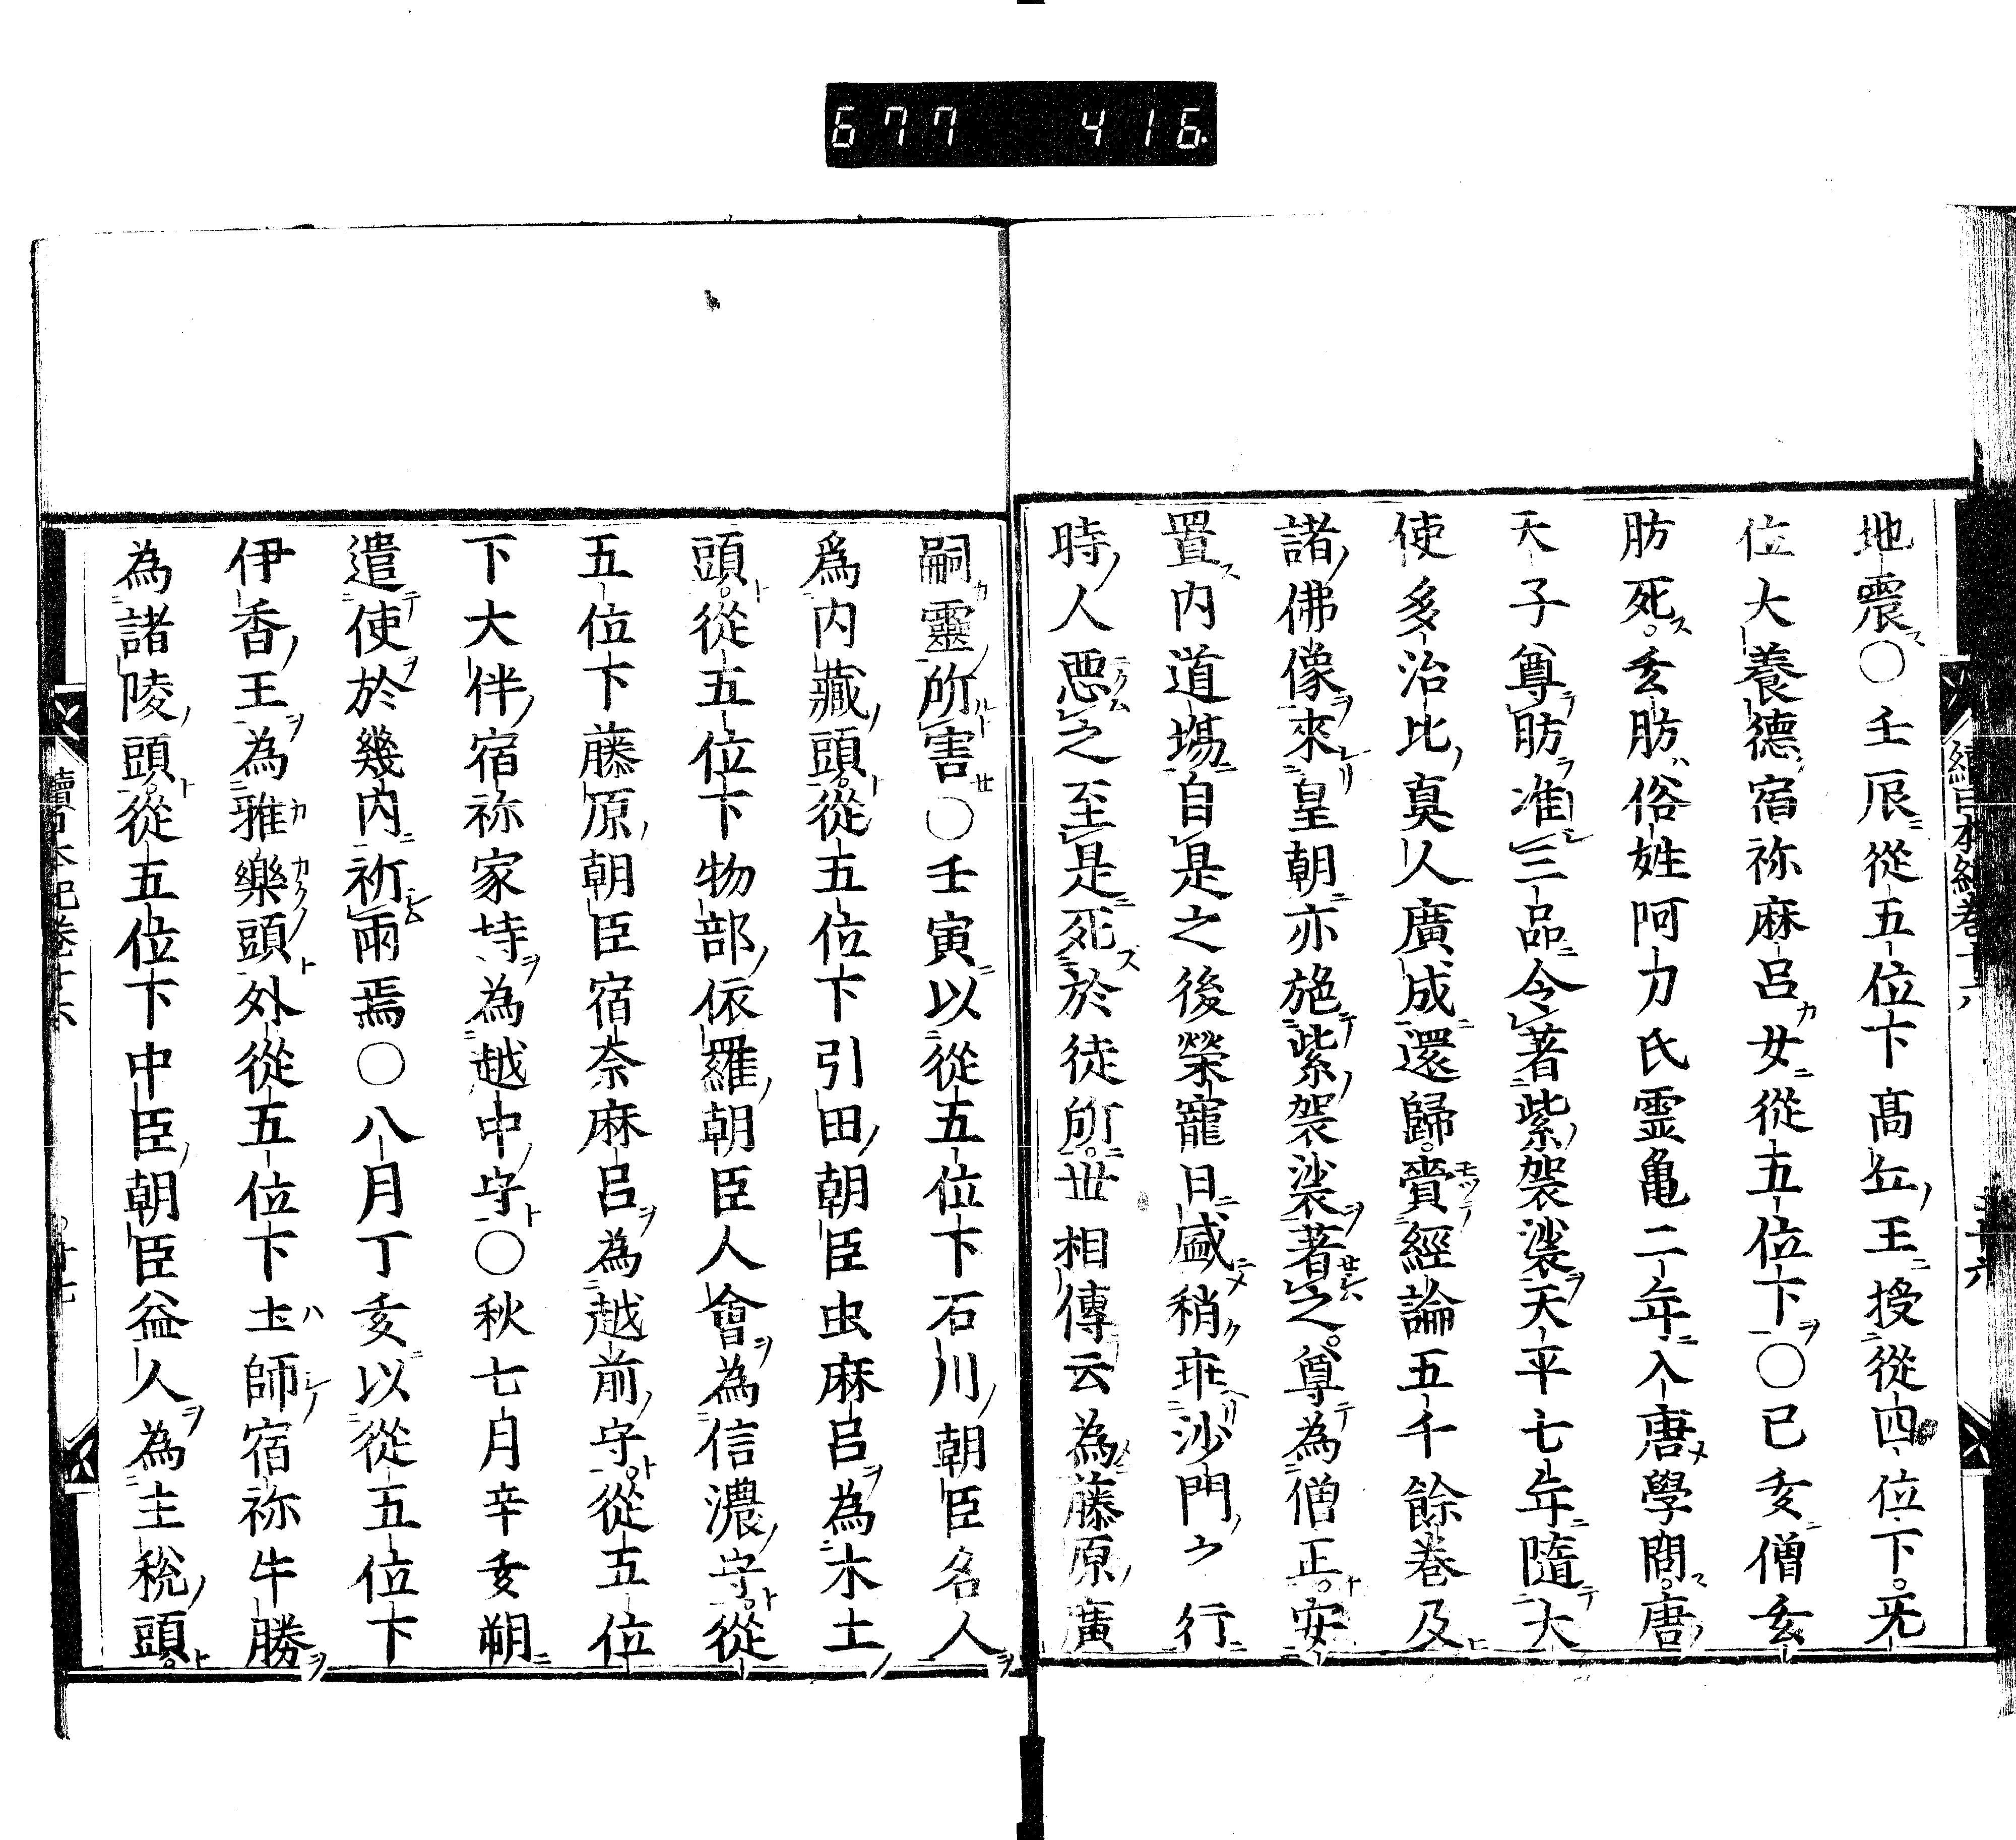 677 416
地震○壬辰從五位下高丘王授從四位下无
位大養德宿祢麻呂女從五位下○己亥僧玄
肪死玄肪俗姓阿刀氏霊亀二年入唐學問唐
天子尊肪准三品令著紫袈裟天平七年隨大
使多治比真人廣成還歸賷經論五千餘巻及
諸佛像來皇朝亦施紫袈裟著之尊為僧正安
置内道場自是之後榮寵日盛稍乖沙門之行
時人悪之至是死於徒所世相傳云為藤原廣
嗣靈所害○壬寅以從五位下石川朝臣名人
爲内藏頭從五位下引田朝臣虫麻呂為木土
頭從五位下物部依羅朝臣人會為信濃守從
五位下藤原朝臣宿奈麻呂為越前守從五位
下大伴宿祢家持為越中守○秋七月辛亥朔
遣使於幾内祈雨焉○八月丁亥以從五位下
伊香王為雅樂頭外從五位下土師宿祢牛勝
為諸陵頭從五位下中臣朝臣益人為主税頭